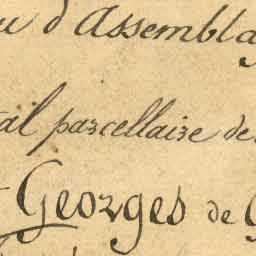 u d'Assembla
al parcellaire de
Georges de G